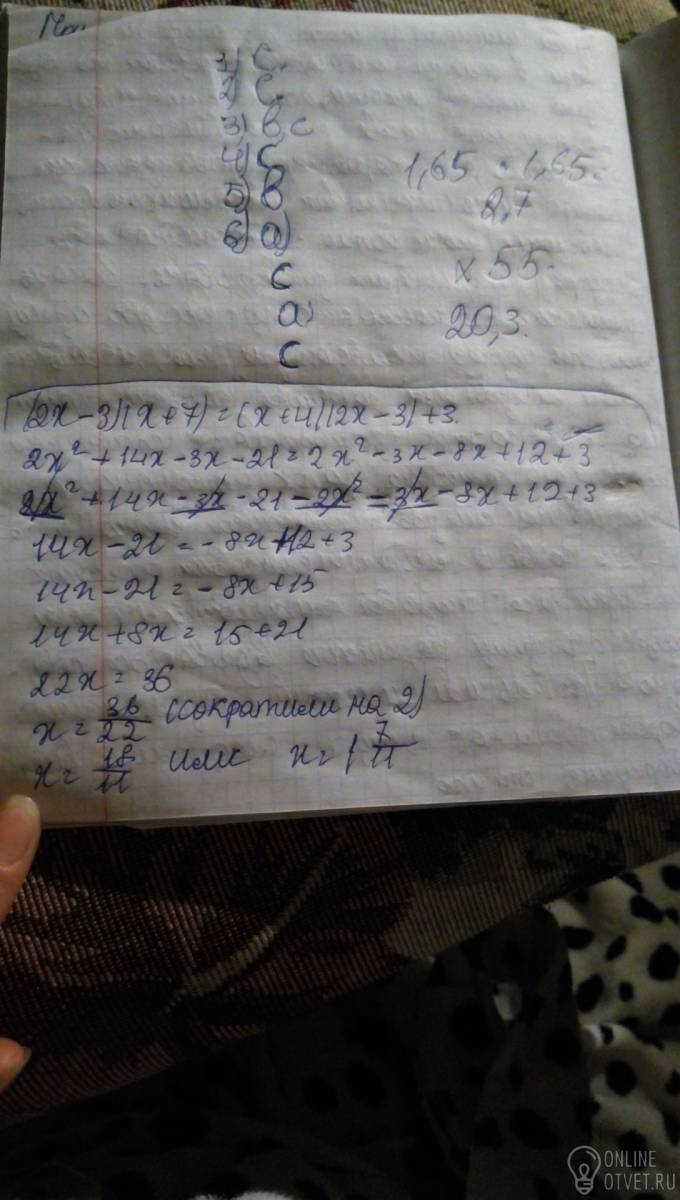 1) C.
2) C.
3) B, C
4) C 1,65 · 1,65.
5) B 2,7
6) a)
C x 55.
a) 20,3.
C
(2x-3)(x+7)=(x+4)(2x-3)+3
2x²+14x-3x-21=2x²-3x-8x+12+3
2x²+14x-3x-21-2x²=3x-8x+12+3
14x-21=-8x+12+3
14x-21=-8x+15
14x+8x=15+21
22x=36
x=36/22 (сократили на 2)
x=18/11 или x=1 7/11
ONLINE
OTVET.RU